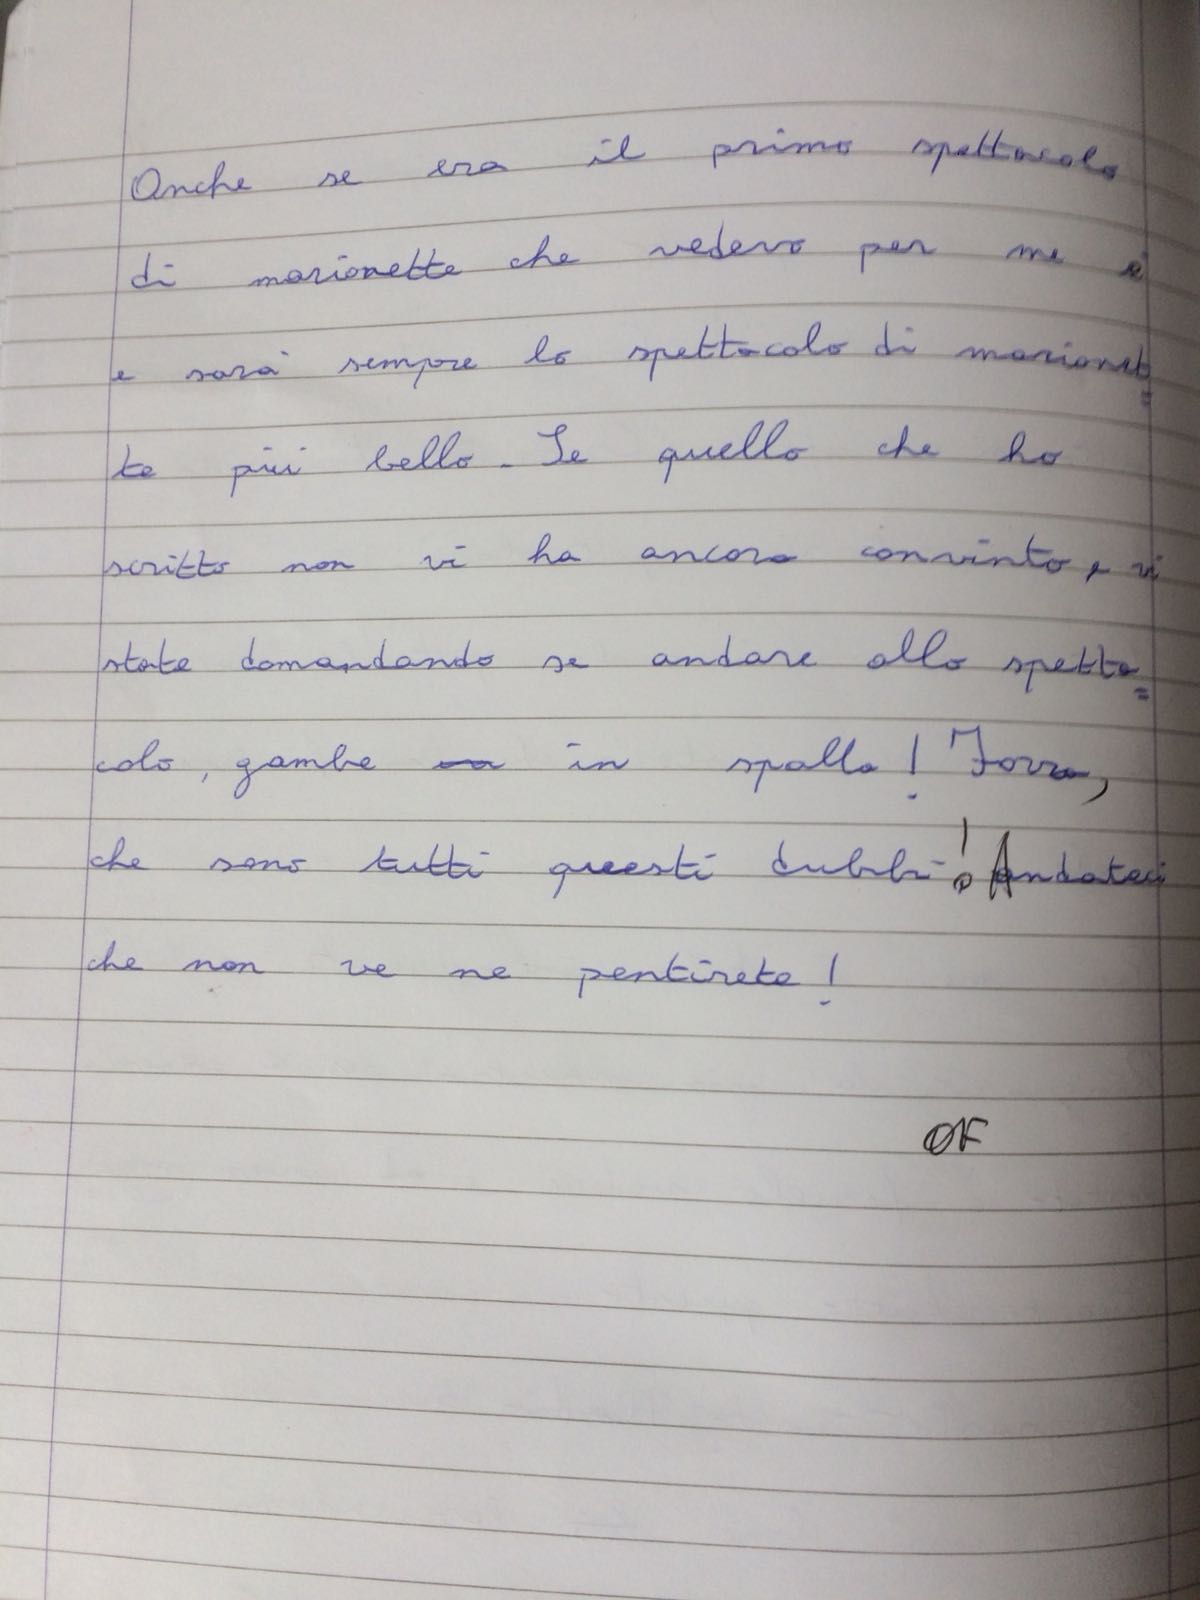 Anche se era il primo spettacolo
di marionette che vedevo per me è
e sarà sempre lo spettacolo di marionet=
te più bello. Se quello che ho
scritto non vi ha ancora convinto, vi
state domandando se andare allo spetta=
colo, gambe in spalla! Forza,
che sono tutti questi dubbi! Andateci
che non ve ne pentirete!
OK